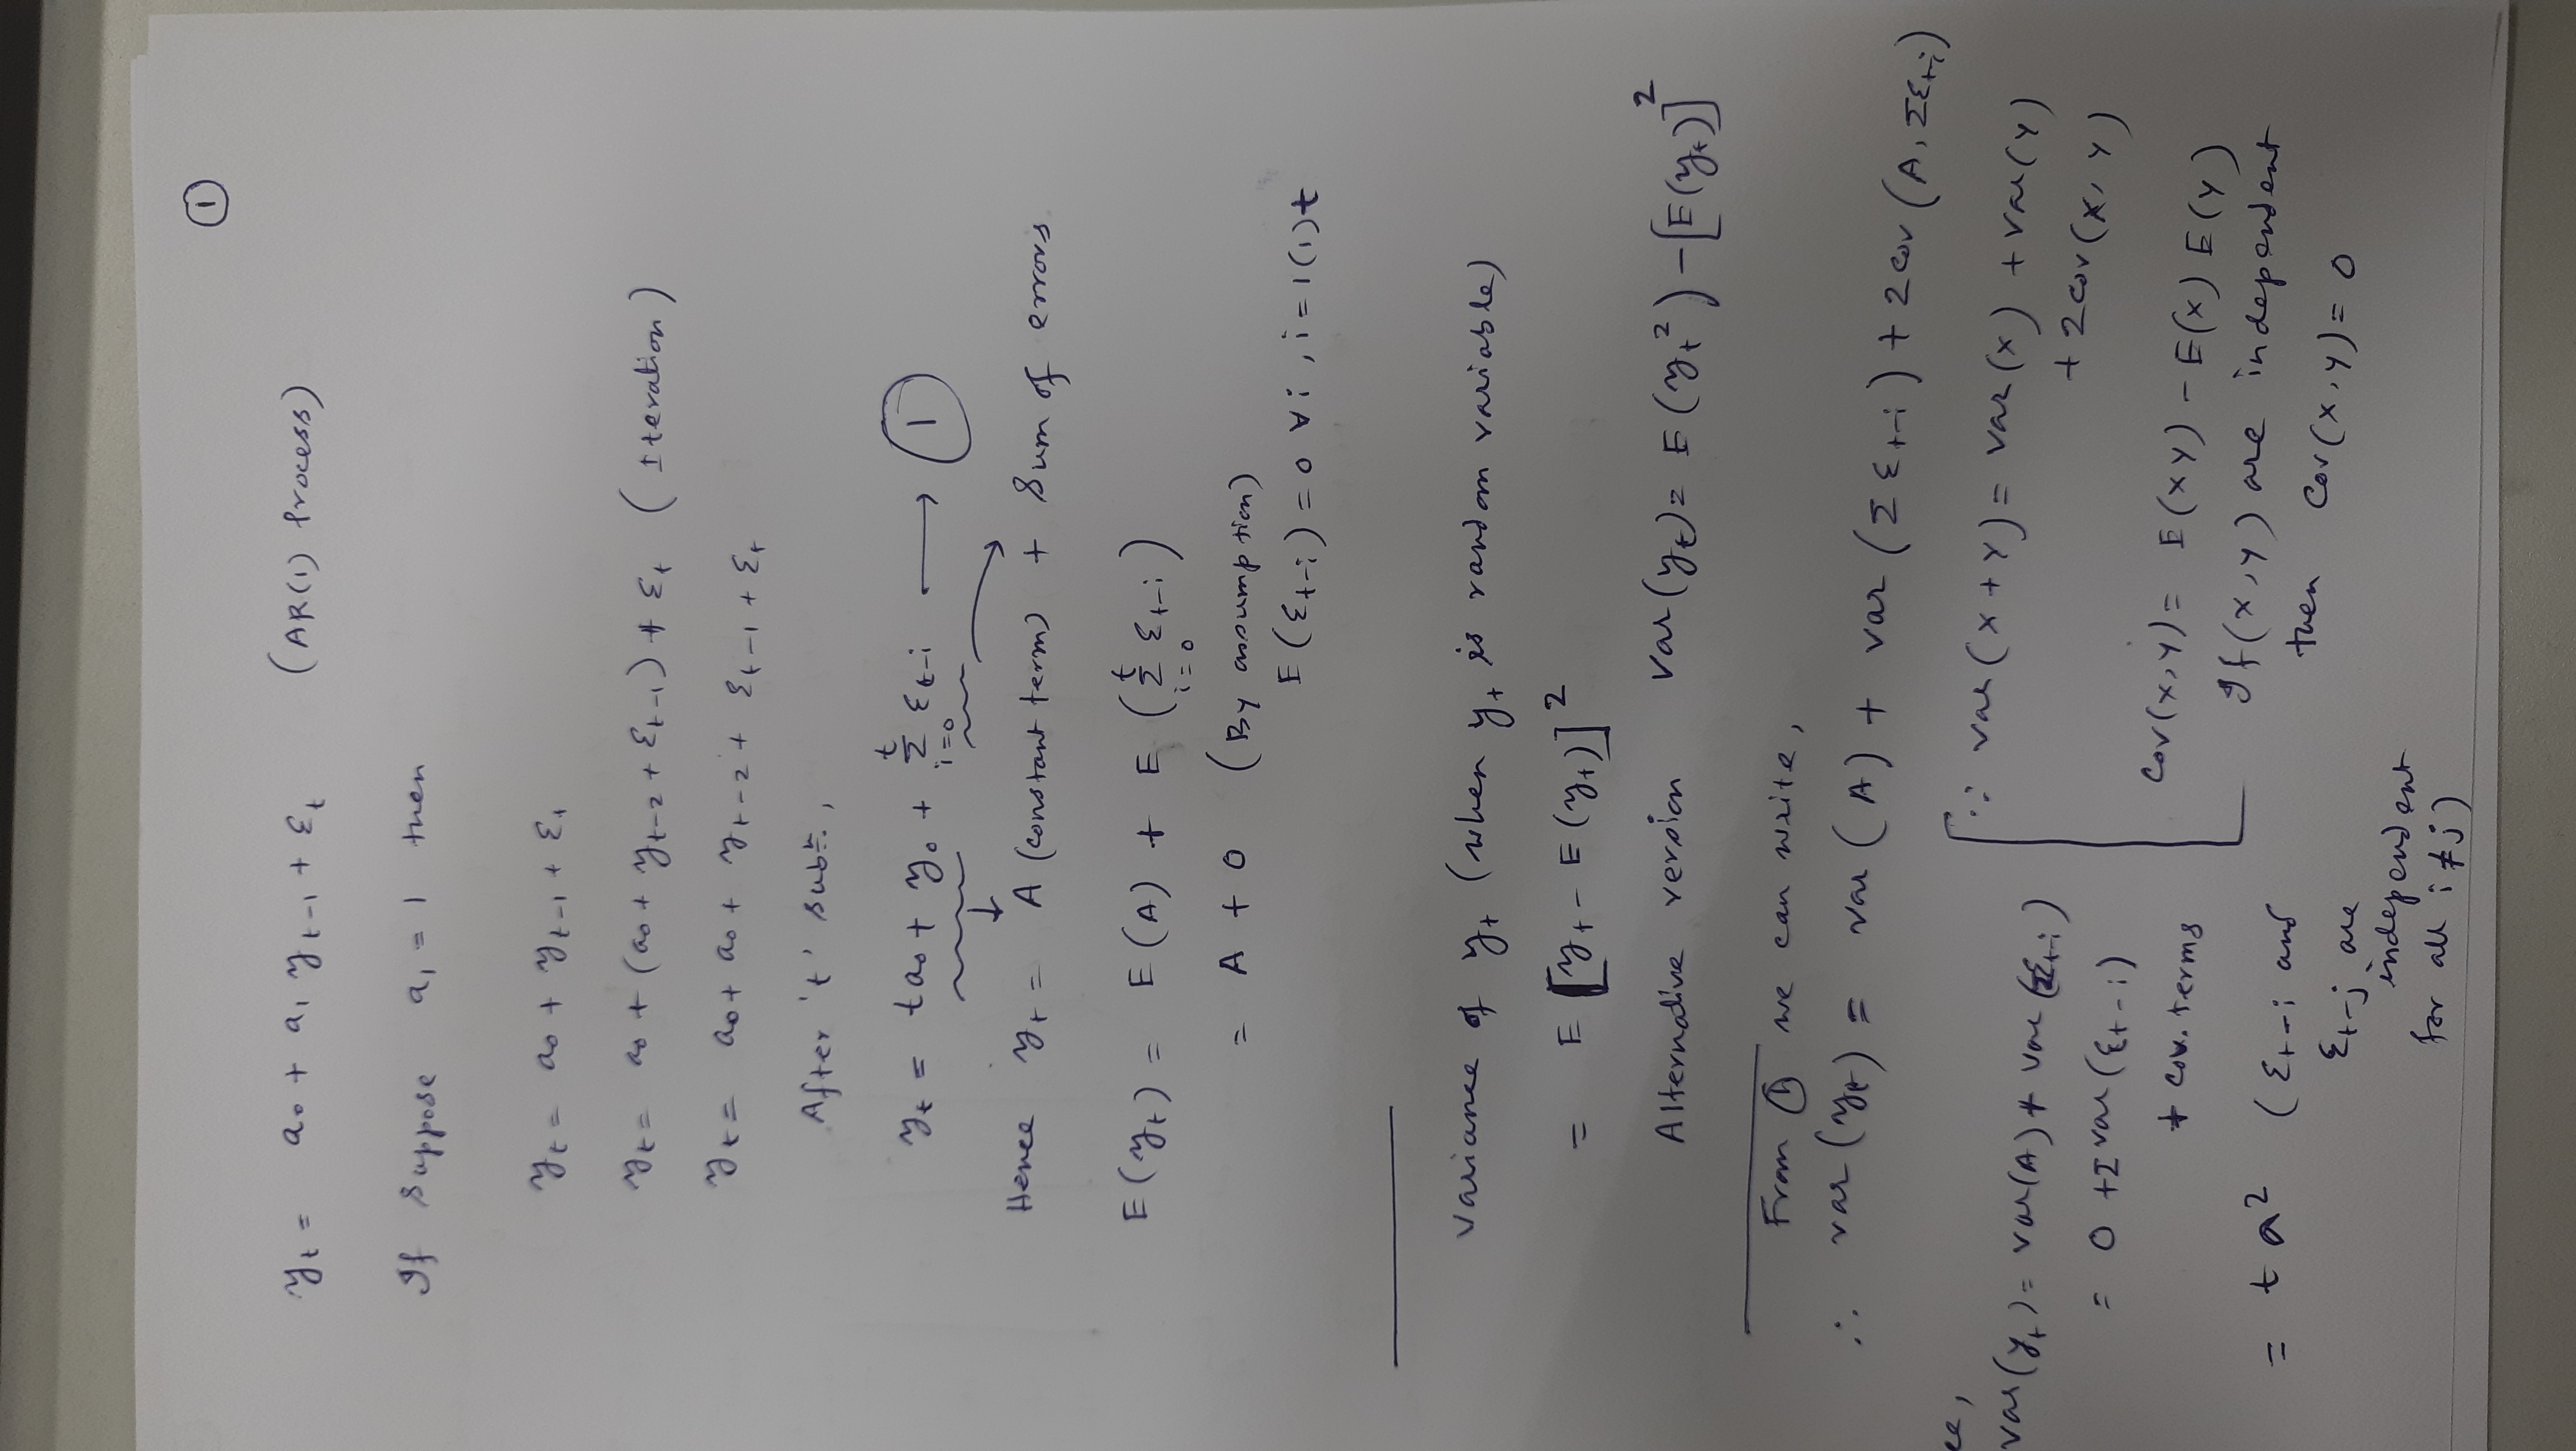 ①
y_t = a_0 + a_1 y_{t-1} + ε_t (AR(1) Process)
If suppose a_1 = 1 then
y_t = a_0 + y_{t-1} + ε_t
y_t = a_0 + (a_0 + y_{t-2} + ε_{t-1}) + ε_t (Iteration)
y_t = a_0 + a_0 + y_{t-2} + ε_{t-1} + ε_t
After 't' subn.,
y_t = ta_0 + y_0 + Σ_{i=0}^{t} ε_{t-i} → ①
↓
Hence y_t = A (constant term) + Sum of errors
E(y_t) = E(A) + E(Σ_{i=0}^{t} ε_{t-i})
= A + 0 (By assumption)
E(ε_{t-i}) = 0 ∀ i, i = 1(1)t
Variance of y_t (when y_t is random variable)
= E[y_t - E(y_t)]^2
Alternative version var(y_t) = E(y_t^2) - [E(y_t)]^2
From ① we can write,
∴ var(y_t) = var(A) + var(Σ ε_{t-i}) + 2cov(A, Σε_{t-i})
ce,
var(y_t) = var(A) + var(Σε_{t-i})
= 0 + Σ var(ε_{t-i})
+ cov. terms
= t a^2 (ε_{t-i} and
ε_{t-j} are
independent
for all i ≠ j)
∵ var(X + Y) = var(X) + var(Y)
+ 2cov(X, Y)
Cov(X, Y) = E(XY) - E(X) E(Y)
If (X, Y) are independent
then Cov(X, Y) = 0